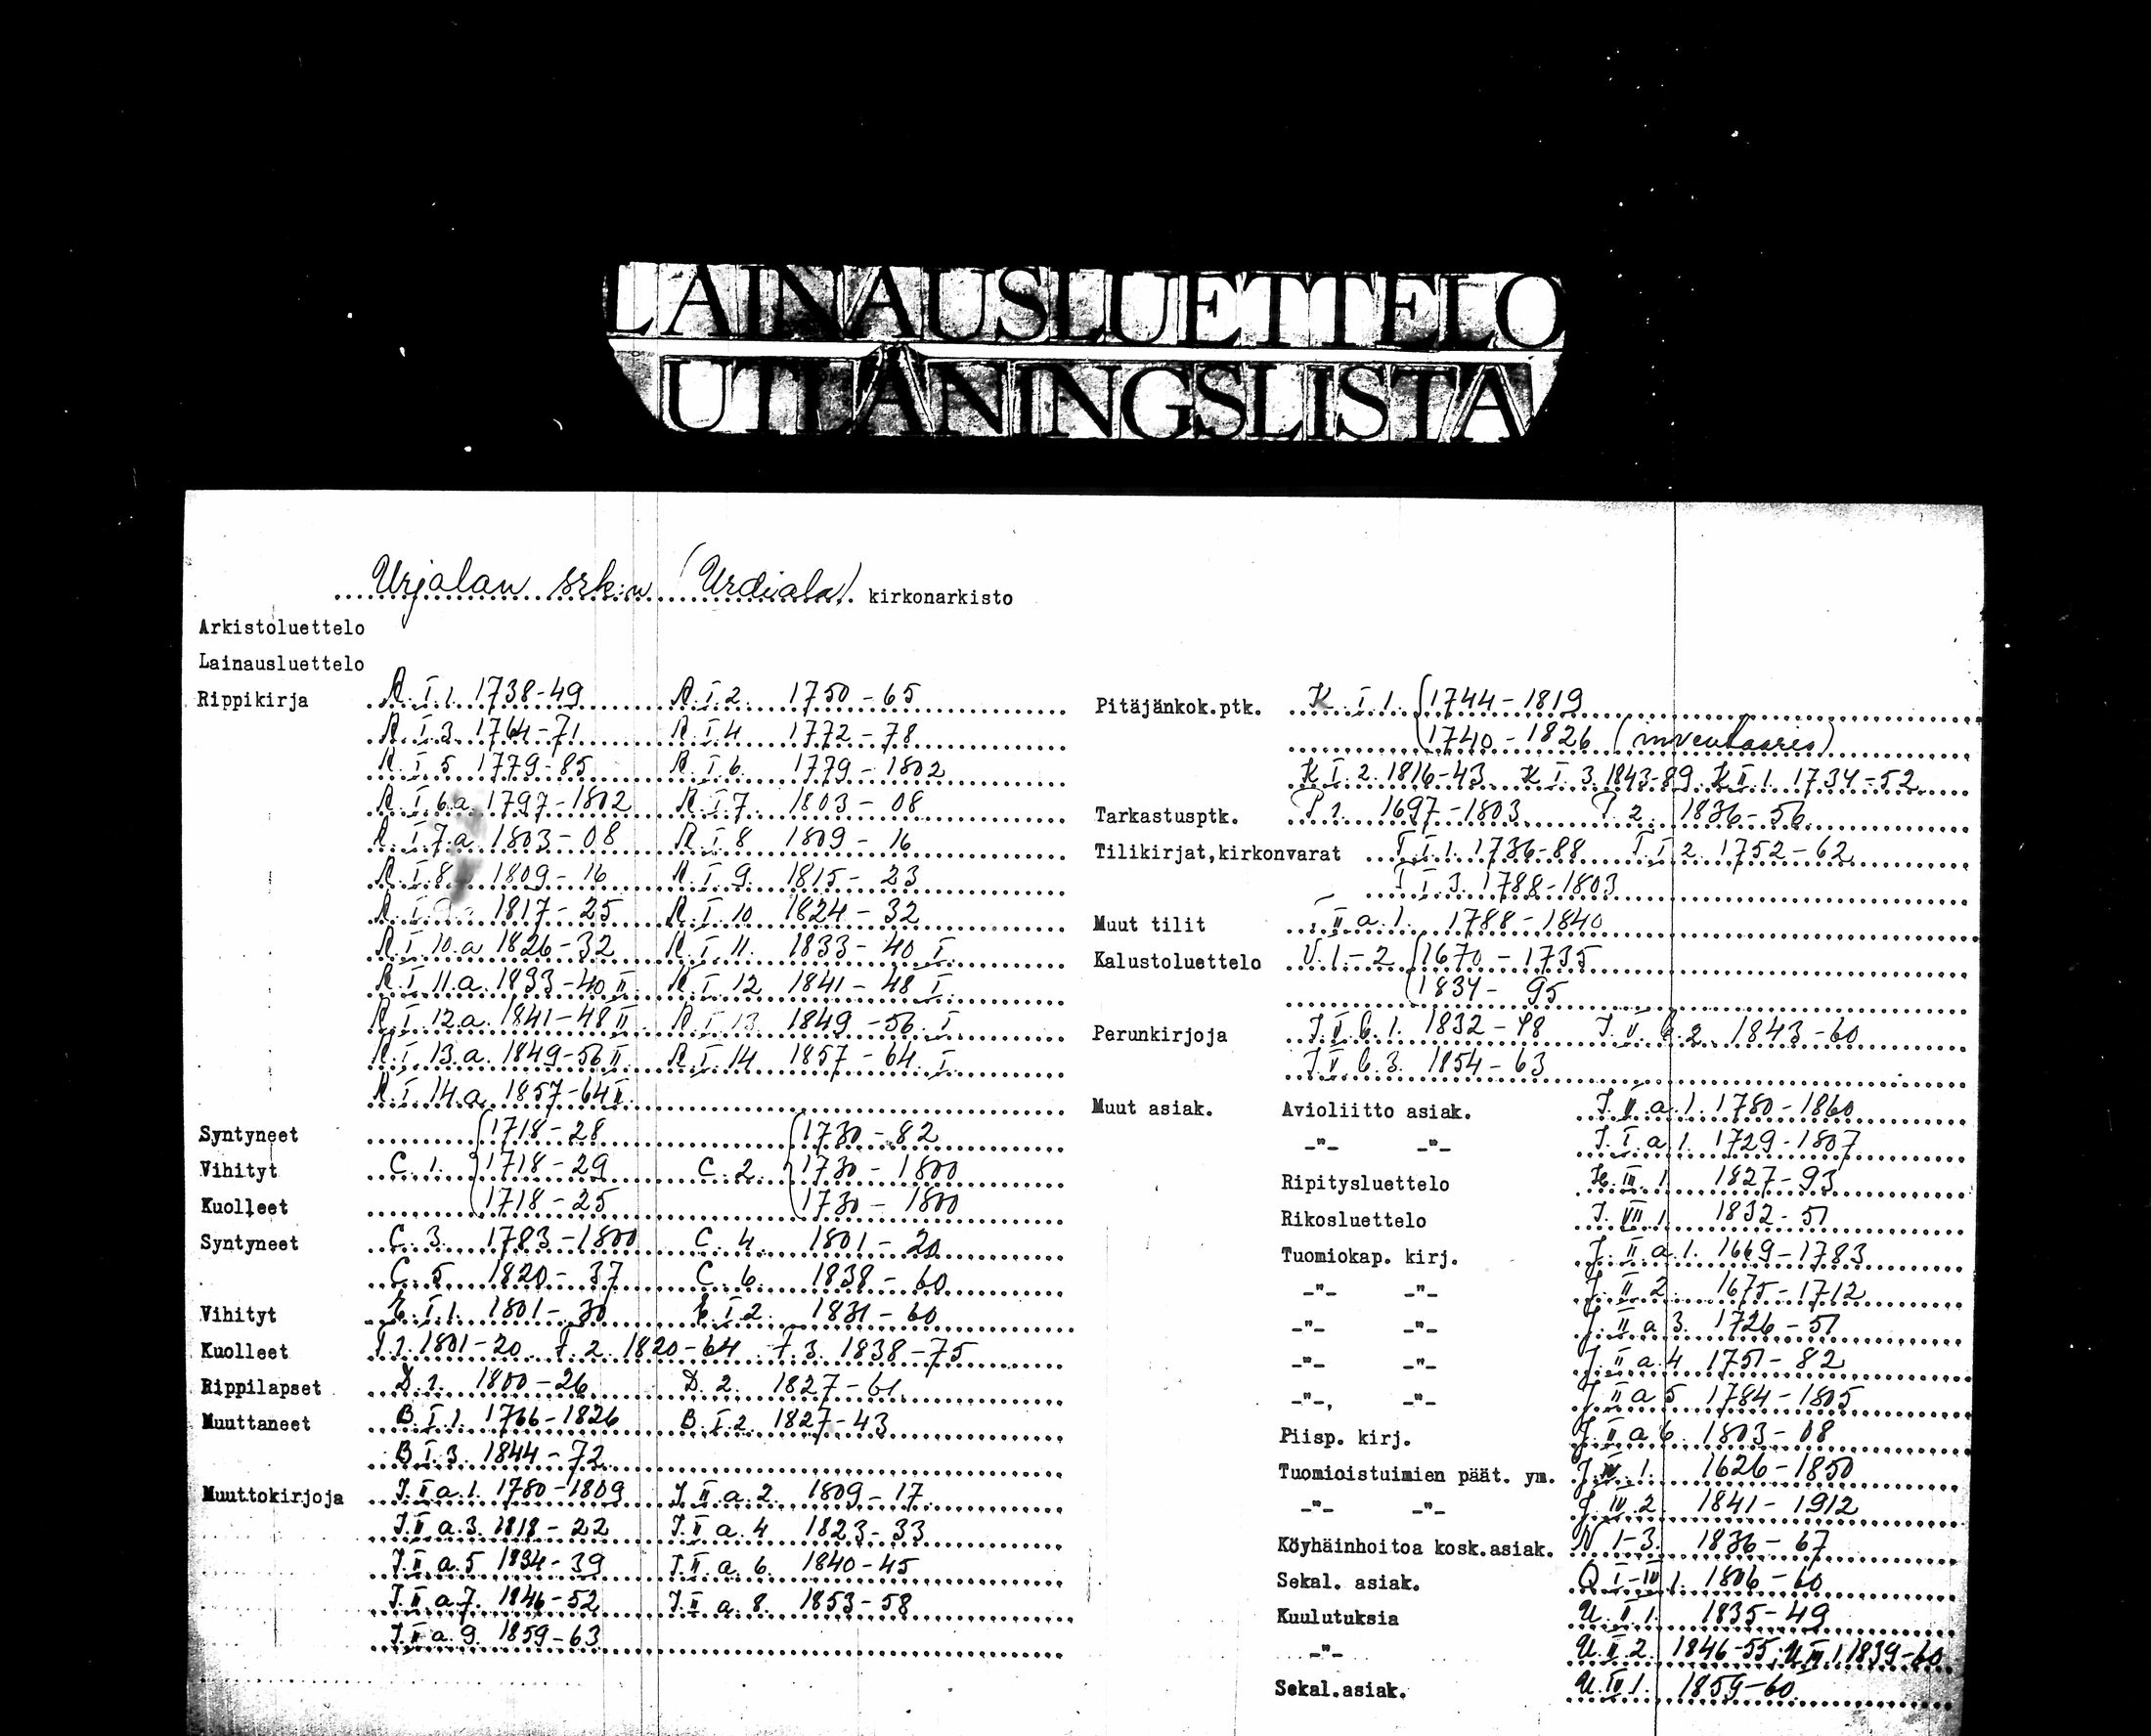 LAINAUSLUETTELO
UTLÅNINGSLISTA
Urjalan srk:n (Urdiala) kirkonarkisto
Arkistoluettelo
Lainausluettelo
Rippikirja R. I. 1. 1738-49 R. I. 2. 1750-65
R. I. 3. 1764-71 R. I. 4 1772-78
R. I. 5 1779-85 R. I. 6. 1779-1802
R. I. 6.a. 1797-1802 R. I. 7. 1803-08
R. I. 7.a. 1803-08 R. I. 8 1809-16
R. I. 8. 1809-16 R. I. 9. 1815-23
R. I. 9.a. 1817-25 R. I. 10 1824-32
R. I. 10.a 1826-32 R. I. 11. 1833-40 I.
R. I. 11.a. 1833-40 II. R. I. 12 1841-48 I.
R. I. 12.a. 1841-48 II. R. I. 13. 1849-56. I.
R. I. 13.a. 1849-56 II. R. I. 14 1857-64. I.
R. I. 14.a. 1857-64 II.
Syntyneet 1718-28 1730-82
Vihityt C. 1. 1718-29 C. 2. 1730-1800
Kuolleet 1718-25 1730-1800
Syntyneet C. 3. 1783-1800 C. 4. 1801-20
C. 5 1820-37 C. 6. 1838-60
Vihityt E. I. 1. 1801-30 E. I. 2. 1831-60
Kuolleet F. 1. 1801-20 F. 2. 1820-64 F. 3. 1838-75
Rippilapset D. 1. 1800-26 D. 2. 1827-61.
Muuttaneet B. I. 1. 1766-1826 B. I. 2. 1827-43
B. I. 3. 1844-72
Muuttokirjoja J. II a. 1. 1780-1809 J. II. a. 2. 1809-17
J. II a. 3. 1818-22 J. II a. 4 1823-33
J. II a. 5 1834-39 J. II a. 6. 1840-45
J. II a. 7. 1846-52 J. II a. 8. 1853-58
J. II a. 9. 1859-63
Pitäjänkok.ptk. K. I. 1. 1744-1819
1740-1826 (inventaario)
K I. 2. 1816-43. K I. 3. 1843-89. K II. 1. 1734-52
Tarkastusptk. P 1. 1697-1803 P. 2. 1836-56
Tilikirjat,kirkonvarat T. I. 1. 1736-88 T. I. 2. 1752-62
T I. 3. 1788-1803
Muut tilit II a. 1. 1788-1840
Kalustoluettelo V. 1-2 1670-1735
1834-95
Perunkirjoja J. V. b. 1. 1832-48 J. V. b. 2. 1843-60
J V b. 3. 1854-63
Muut asiak. Avioliitto asiak. J. II. a. 1. 1780-1860
-"- -"- J. I. a. 1. 1729-1807
Ripitysluettelo H. III. 1. 1827-93
Rikosluettelo J. VII 1. 1832-51
Tuomiokap. kirj. J. II. a. 1. 1669-1783
-"- -"- J. II 2. 1675-1712
-"- -"- J. II a 3. 1726-51
-"- -"- J. II a. 4 1751-82
-"-, -"- J. II a 5 1784-1805
Piisp. kirj. J. II a 6. 1803-08
Tuomioistuimien päät. ym. J. IV. 1. 1626-1850
-"- -"- J IV. 2. 1841-1912
Köyhäinhoitoa kosk.asiak. N 1-3. 1836-67
Sekal. asiak. Q I-IV 1. 1806-60
Kuulutuksia U. II 1. 1835-49
-"- U. II. 2. 1846-55, U III. 1. 1839-60
Sekal.asiak. U. IV 1. 1859-60